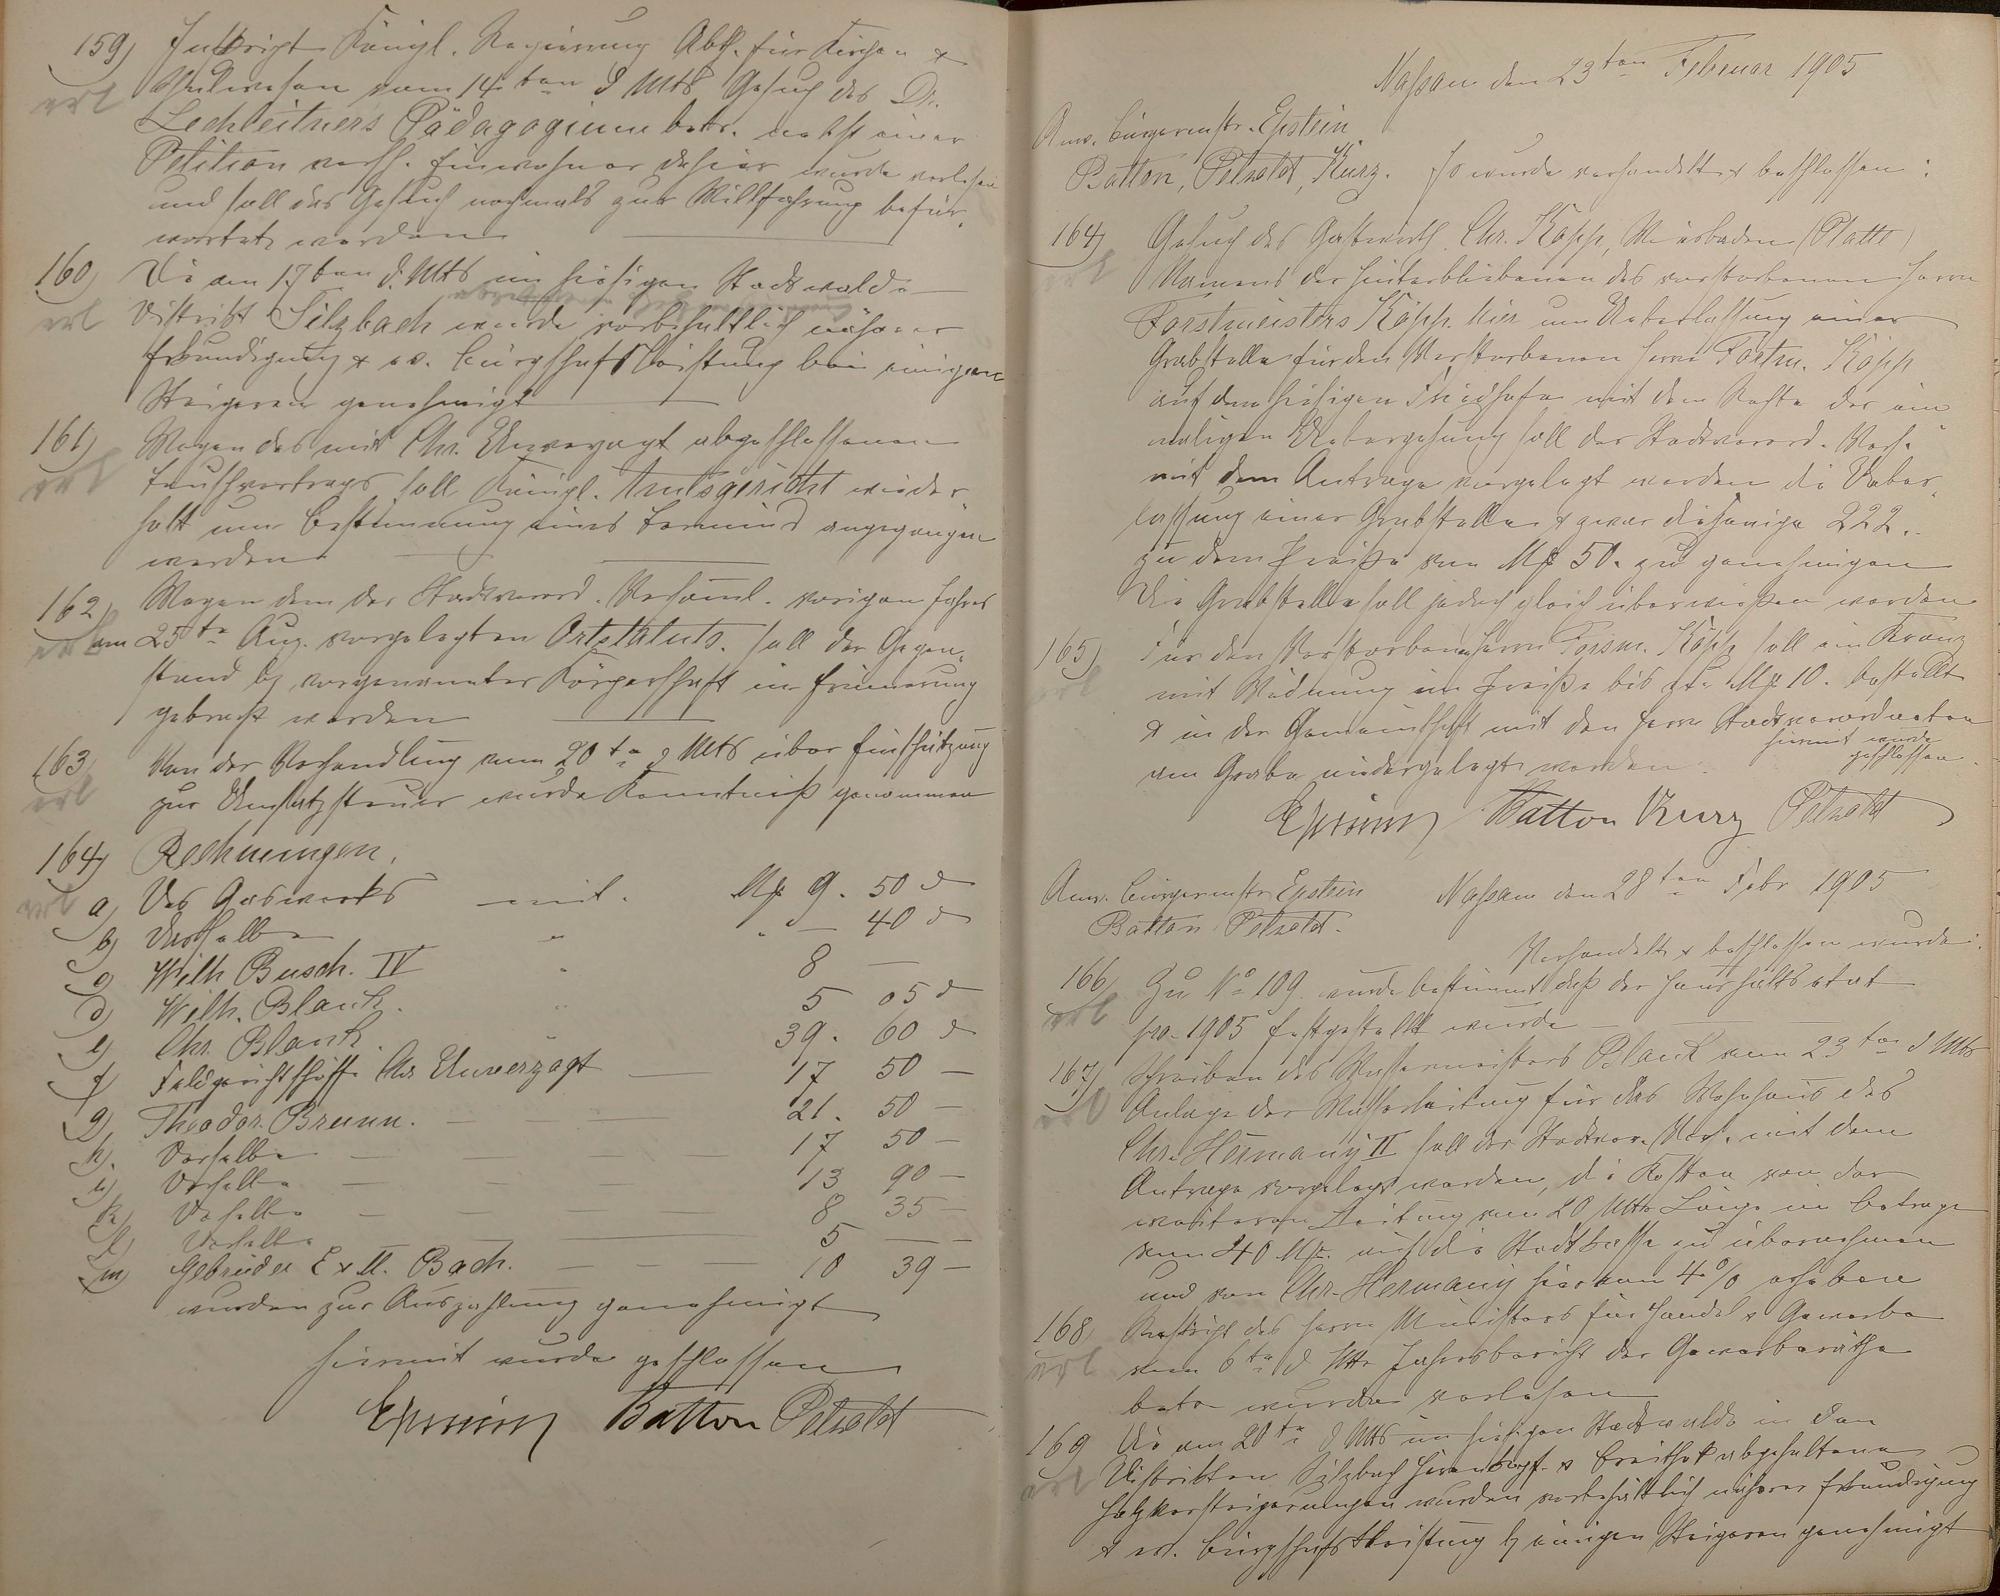 159) Inskript Königl. Regierung Abth. für Kirchen &
erl Schulwesen vom 14ten d Mts Gesuch des Dr.
Lechleitners Pädagogium betr. nebst einer
Petition versch. Einwohner dahier wurde verlesen
und soll das Gesuch nochmals zur Willfahrung befür-
wortet werden
160) Die am 17ten d. Mts im hiesigen Stadtwalde
erl Distrikt Silzbach wurde vorbehaltlich näherer
Erkundigung & ev. Bürgschaftsleistung bei einigen
Steigerern genehmigt
161) Wegen des mit Chr. Unverzagt abgeschlossenen
erl Tauschvertrags soll Königl. Amtsgericht wieder
holt um Bestimmung eines Termins angegangen
werden
162) Wegen dem der Stadtverord. Versaml. vorigen Jahres
erl am 25te Aug. vorgelegten Ortstatuts. soll der Gegen-
stand bz vorgenannter Körperschaft in Erinnerung
gebracht werden
163) Von der Verhandlung vom 20te d Mts über Einschätzung
erl zur Umsatzsteuer wurde Kenntniß genommen
164) Rechnungen.
erl a) Des Gaswerks mit. Mk 9. 50 d
b) Desselbe " " — 40 d
c) Wilh Busch. IV " 8 —
d) Wilh. Blank. " 5 05 d
e) Chr. Blank. " 39. 60 d
f) Feldgerichtschöffe Chr Unverzagt — 17 50 —
g) Theodor. Brunn. — — — 21. 50 —
h. Derselbe — — — 17 50 —
i) Derselbe — — — 13 90 —
k) Derselbe — — — 8 35 —
l) Derselbe — — — 5 — —
m) Gebrüder E & M. Bach. — — — 10 39 —
wurden zur Auszahlung genehmigt
hiermit wurde geschlossen
Epstein Batton Petzoldt
Naßau den 23ten Februar 1905
Anw. Bürgermstr. Epstein
Batton, Petzoldt, Kurz. Es wurde verhandelt & beschlossen:
164) Gesuch des Gastwirth Chr. Köpp, Wiesbaden (Platte)
erl Namens der Hinterbliebenen des verstorbenen Herrn
Forstmeisters Köpp. hier um Ueberlassung einer
Grabstelle für den Verstorbenen Herrn Forstm. Köpp
auf dem hiesigen Friedhofe mit dem Rechte der ein
maligen Uebergehung soll der Stadtverord. Vers.
mit dem Antrage vorgelegt werden die Ueber-
lassung einer Grabstelle & zwar diejenige 222.
zu dem Preiße von Mk 50. zu genehmigen
Die Grabstelle soll jedoch gleich überwießen werden
165) Für den Verstorbenen Herrn Forsm. Köpp soll ein Kranz
erl mit Widmung im Preiße bis zu Mk 10. bestellt
& in der Gemeinschaft mit den Herrn Stadtverordneten
am Grabe niedergelegt werden. hiermit wurde
geschlossen.
Epstein Batton Kurz Petzoldt
Anw. Bürgermstr Epstein Naßau den 28ten Febr 1905
Batton Petzoldt.
Verhandelt & beschlossen wurde:
166) Zu No 109. wurde bestimmt daß der Haushaltsetat
erl pro. 1905 festgestellt wurde
167) Schreiben des Wassermeisters Blank vom 23ten d Mts
erl Anlage der Wasserleitung für das Wohnhaus des
Chr. Hermany II soll der Stadtver. Vers. mit dem
Antrage vorgelegt werden, die Kosten von der
weiteren Leitung von 20 Mtr Länge im Betrage
von 40 Mk. auf die Stadtkasse zu übernehmen
und von Chr. Hermany hiervon 4% erheben
168) Reskript des Herrn Ministers für Handel & Gewerbe
erl vom 6te d Mts Jahresbericht der Gewerberäthe
betr wurde verlesen
169 Die am 20te d Mts im hiesigen Stadtwalde in den
erl Distrikten Silzbach & abgehaltene
Holzversteigerungen wurden vorbehaltlich näherer Erkundigung
& ev. Bürgschaftsleistung bz einigen Steigerern genehmigt